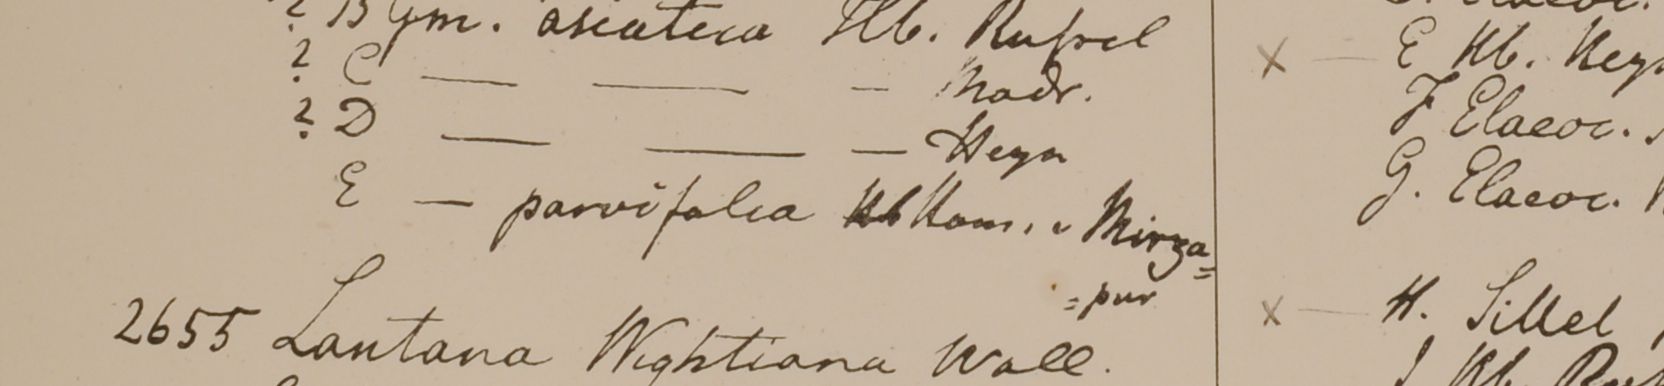 ? B Gm. asiatica Hb. Rusfel
? C — — — Madr.
? D — — — Heyn
E — parvifolia Ham. Mirza=
=pur
2655 Lantana Wightiana Wall.
x — E Hb. Heyn
F Elaeoc.
G. Elaeoc.
x — H. Sillet
I Hb.